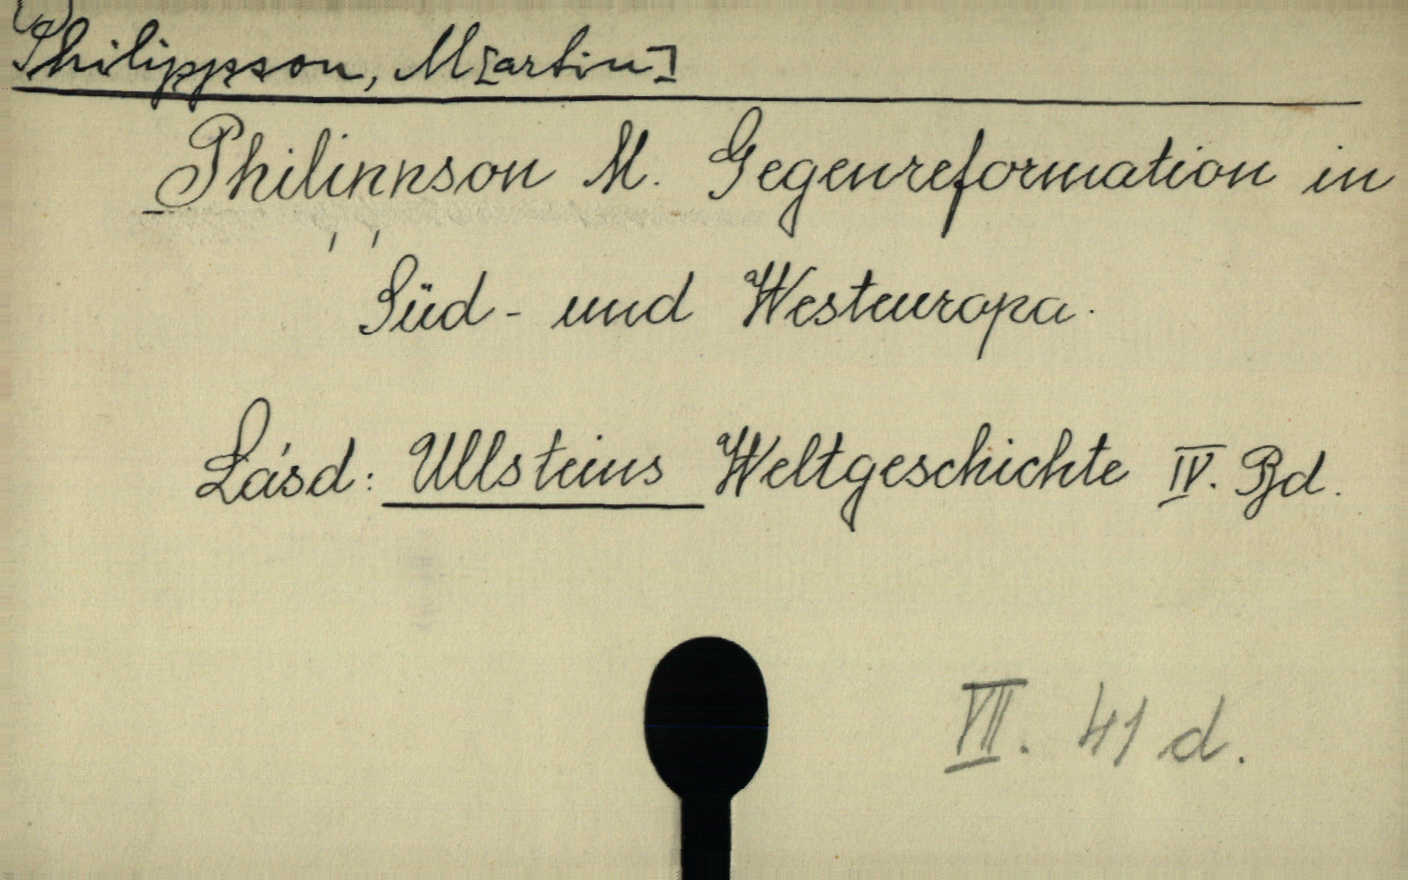 Philippson, M[artin]
Philippson M. Gegenreformation in
Süd- und Westeuropa.
Lásd: Ullsteins Weltgeschichte IV. Bd.
VII. 41 d.